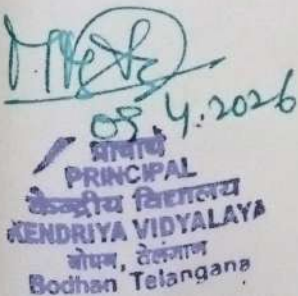 09.4.2026
प्राचार्य
PRINCIPAL
केन्द्रीय विद्यालय
KENDRIYA VIDYALAYA
बोधन, तेलंगाना
Bodhan Telangana